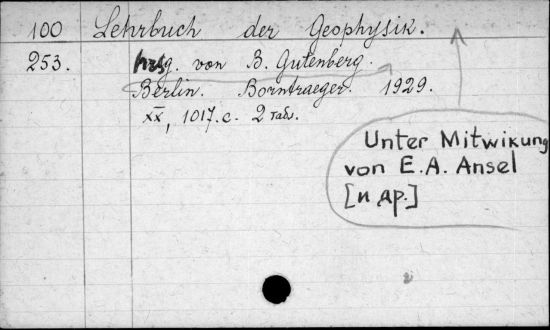 100 Lehrbuch der Geophysik.
253. hrsg. von B. Gutenberg.
Berlin. Borntraeger. 1929.
XX, 1017. с. 2 табл.
Unter Mitwikung
von E.A. Ansel
[и др.]